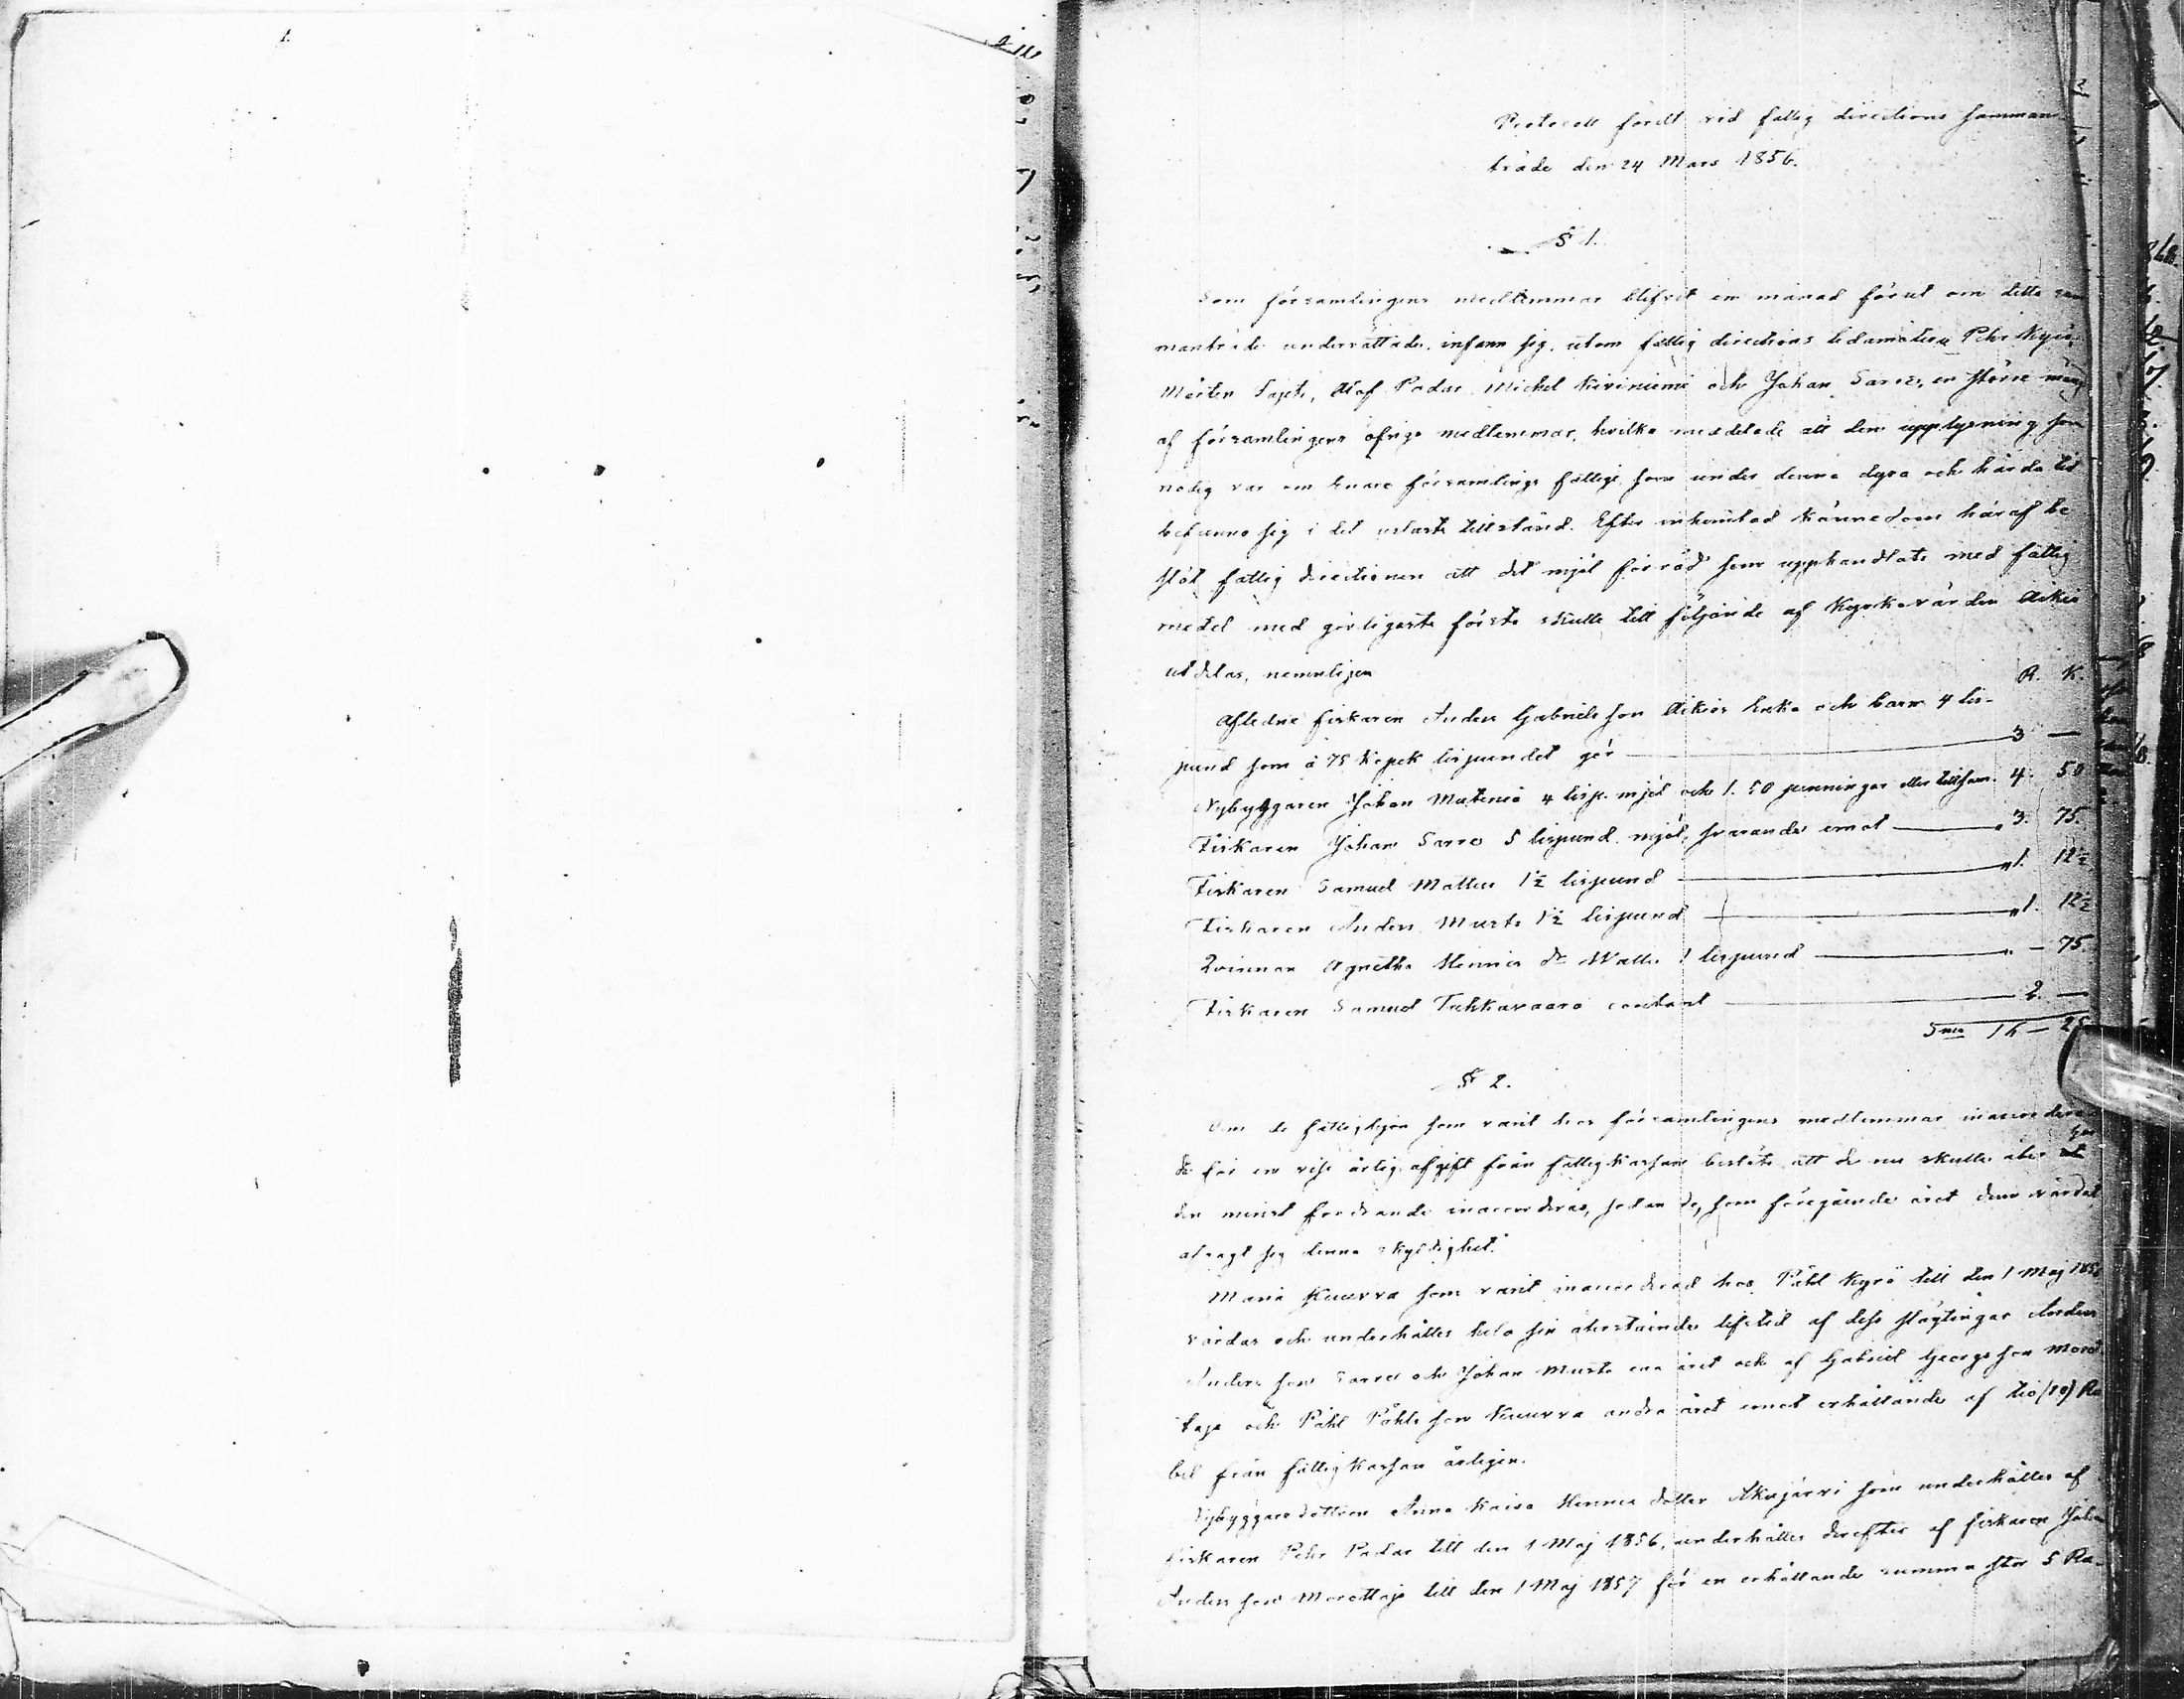 Protocoll fördt vid fattig directions samman-
träde den 24 Mars 1856.
§ 1.
Som församlingens medlemmar blifvit en månad förut om detta sam
manträde underrättade, infann sig, utom fattig directions ledamöterna Pehr Kyrö,
Mårten Sajets, Olof Padar, Michel Kiviniemi och Johan Sarre, en större mängd
af församlingens öfriga medlemmar, hvilka meddelade all den upplysning som
nödig var om Enare församlings fattige, som under denna dyra och hårda tid
befunno sig i det uslaste tillstånd. Efter inhemtad kännedom häraf be
slöt fattig directionen att det mjöl förråd som upphandlats med fattig
medel med görligaste första skulle till följande af Kyrkovärden Aikio
utdelas, nemnligen
R. K.
Afledne fiskaren Anders Gabrielsson Aikios Enka och barn 4 lis-
pund som à 75 kopek lispundet gör 3 —
Nybyggaren Johan Mutenia 4 lisp. mjöl och 1. 50 penningar eller tillsam. 4. 50
Fiskaren Johan Sarre 5 lispund mjöl, svarande emot 3. 75.
Fiskaren Samuel Mattus 1½ lispund " 1. 12½
Fiskaren Anders Musta 1½ lispund " 1. 12½
Qvinnan Agnetha Henrics dr Walle 1 lispund " — 75.
Fiskaren Samuel Tuhkavaara contant 2. —
Sma 16 — 25
§ 2.
Om de fattighjon som varit hos församlingens medlemmar inaccordera
de för en viss årlig afgift från fattigkassan beslöts att de nu skulle åter hos
den minst fordrande inaccorderas, sedan de, som föregående året dem vårdat
afsagt sig denna skyldighet.
Maria Kuuvva som varit inaccorderad hos Påhl Kyrö till den 1 Maj 1856
vårdas och underhålles hela sin återstående lifstid af dess slägtingar Anders
Anders son Sarre och Johan Musta ena året och af Gabriel Georgsson Morot-
taja och Påhl Påhls son Kuuvva andra året emot erhållande af tio (10) Ru
bel från fattigkassan årligen.
Nybyggaredottren Anna Kaisa Henrics dotter Akujärvi som underhålles af
fiskaren Pehr Padar till den 1 Maj 1856, underhålles derefter af fiskaren Johan
Anders son Morottaja till den 1 Maj 1857 för en erhållande summa stor 5 Ru-